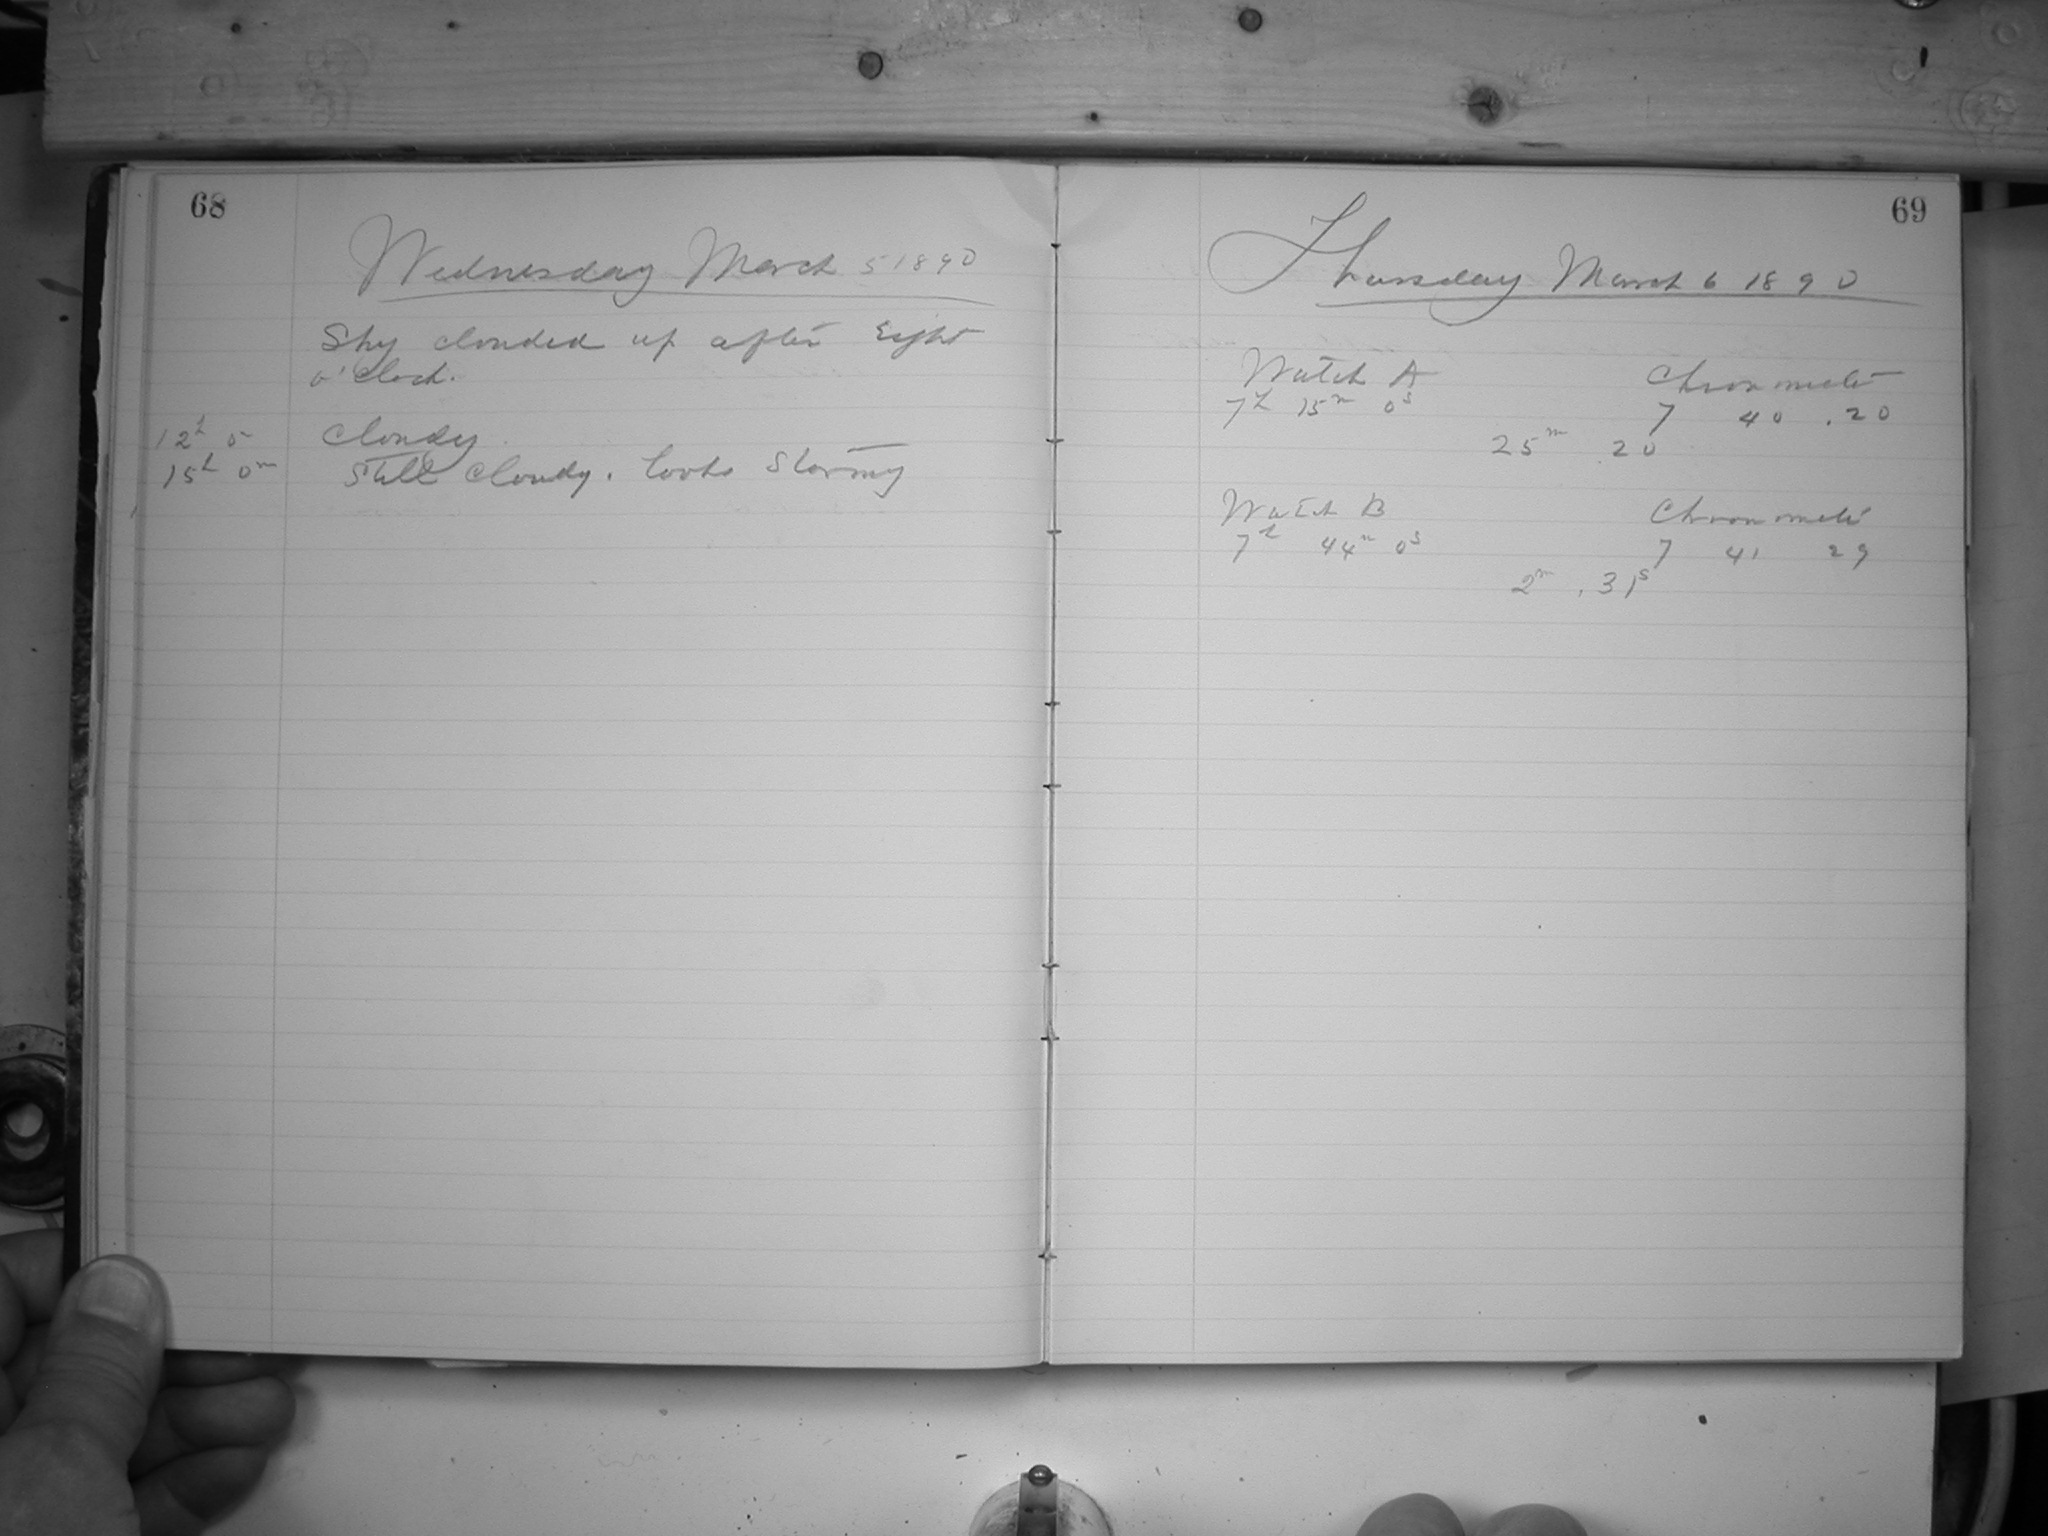 68
Wednesday March 5 1890
Sky clouded up after Eight
o'Clock.
12h 0 Cloudy.
15h 0m Still Cloudy. looks Stormy
69
Thursday March 6 1890
Watch A Chronometer
7h 15m 0s 7 40 .20
25m 20
Watch B Chronometer
7h 44m 0s 7 41 29
2m .31s